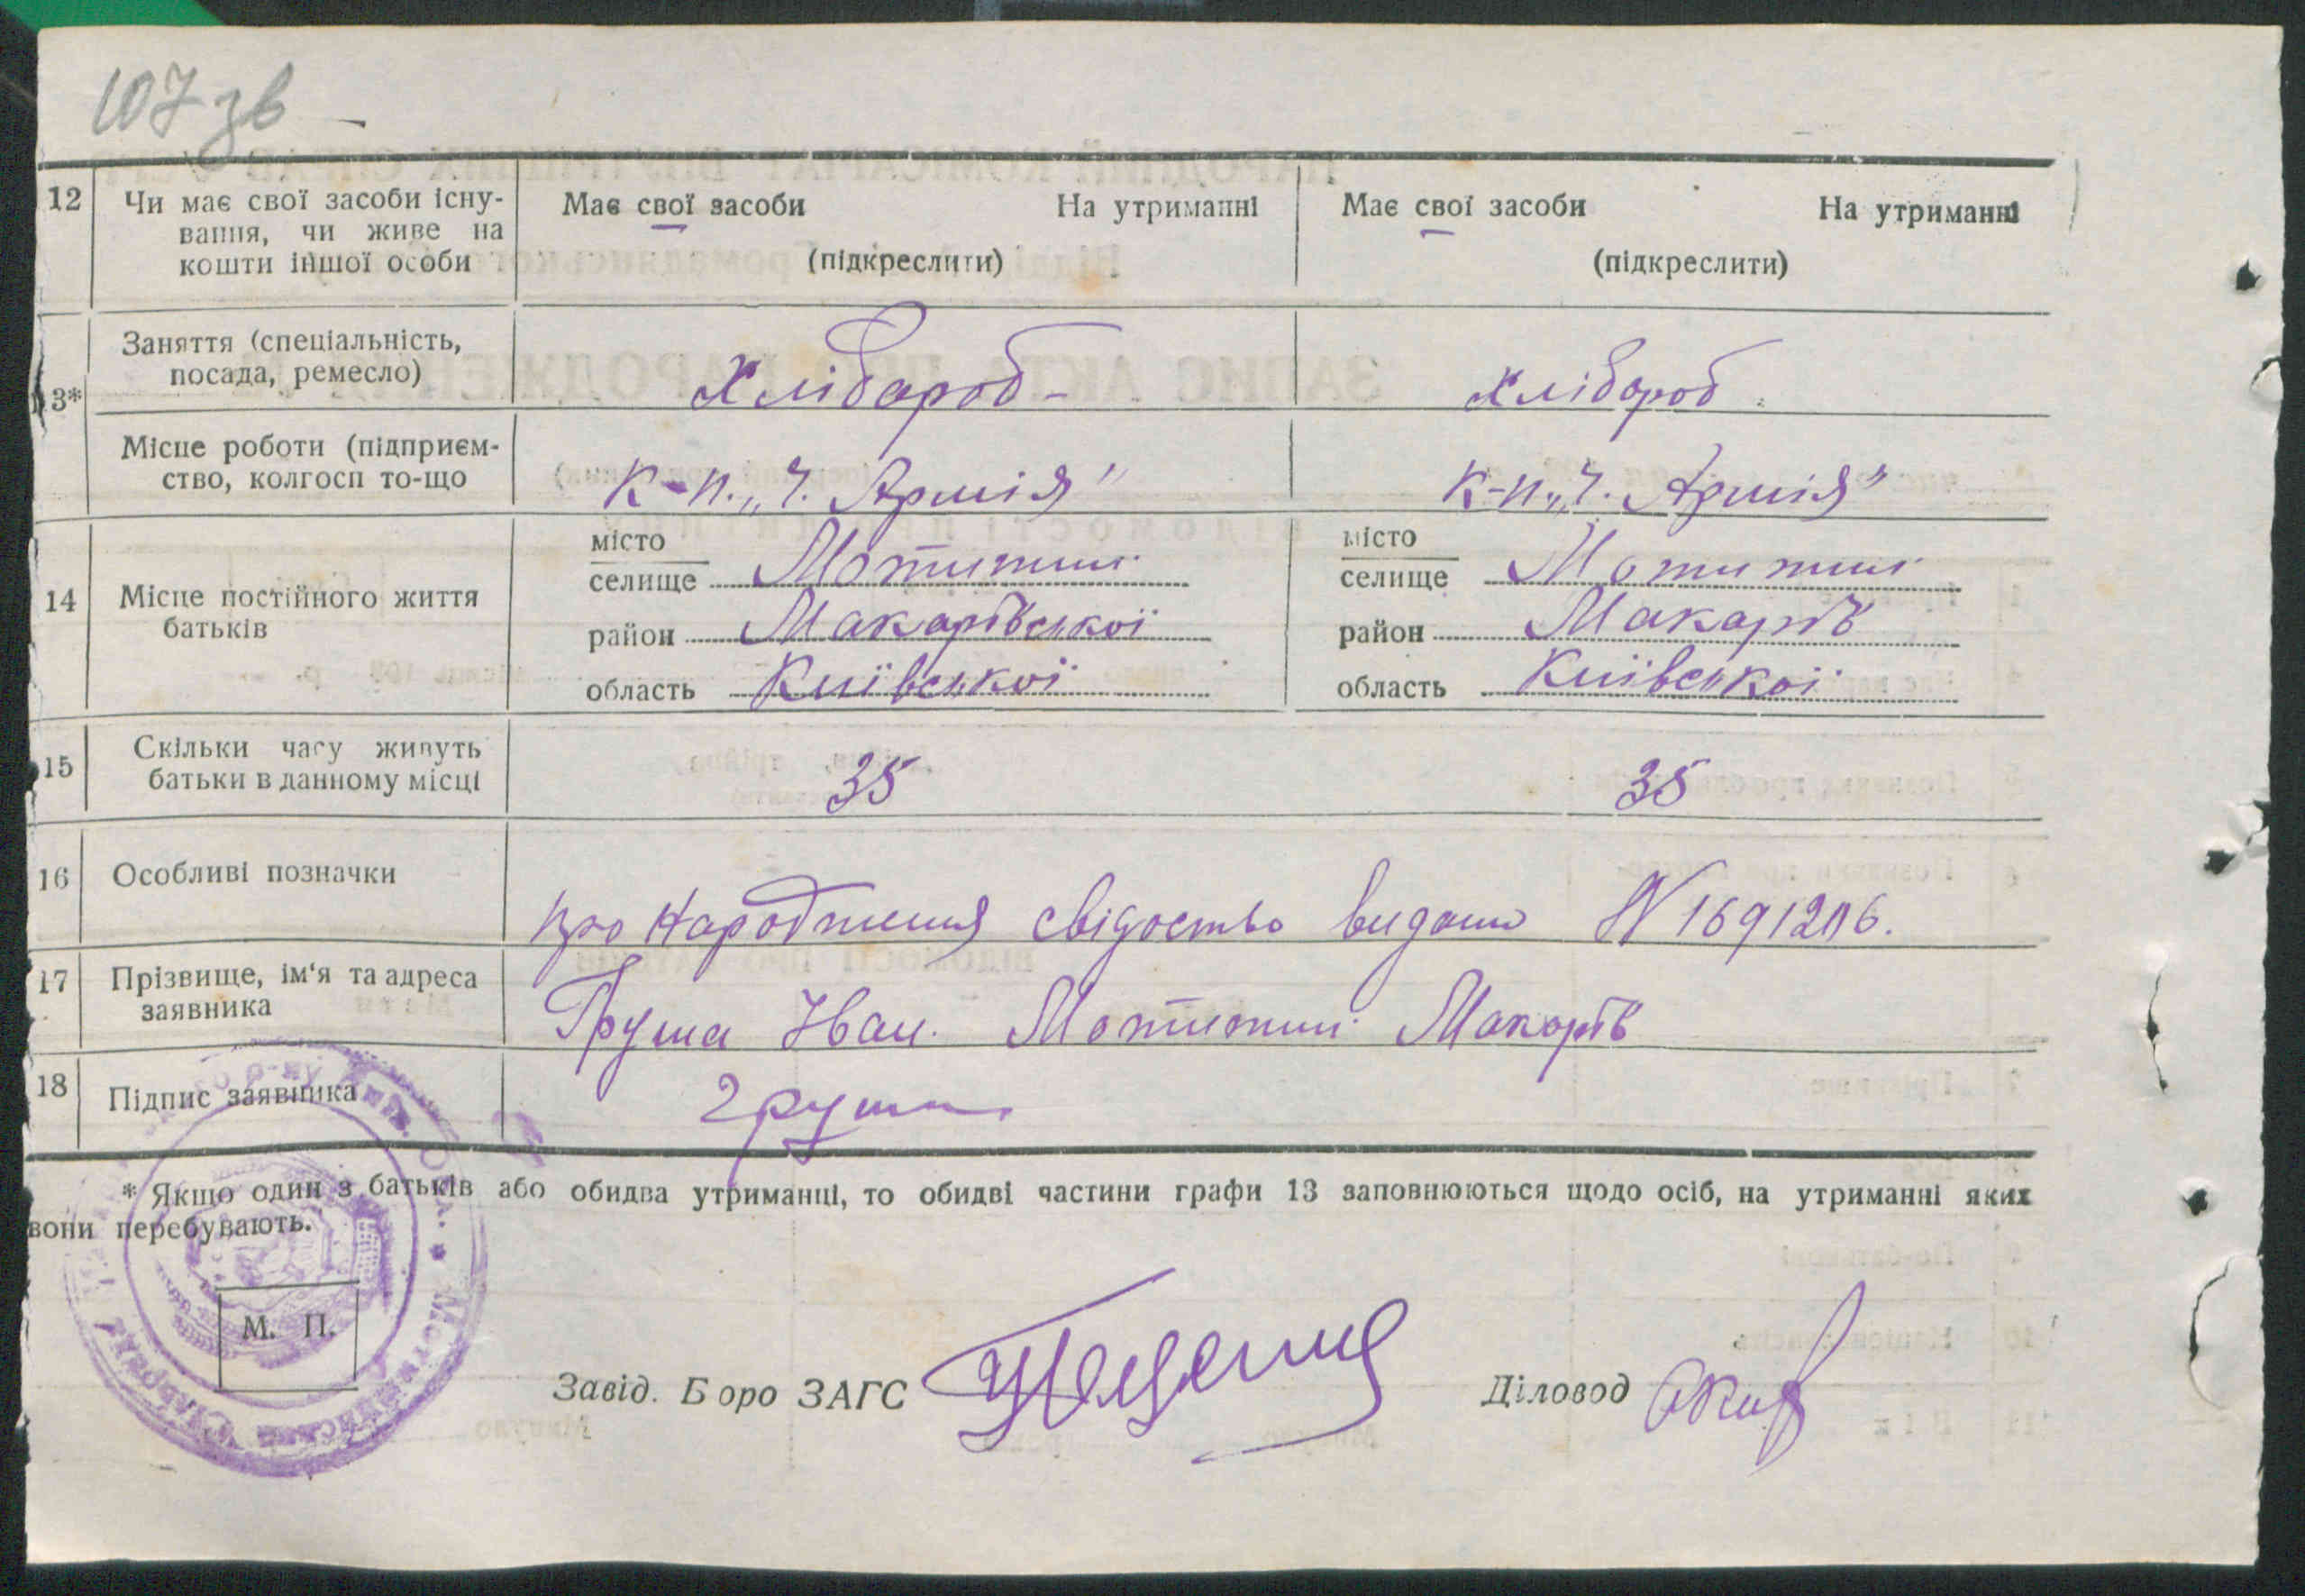 107 зв
12
Чи має свої засоби існу-
вання, чи живе на
кошти іншої особи
Має свої засоби На утриманні
(підкреслити)
Має свої засоби На утриманні
(підкреслити)
13*
Заняття (спеціальність,
посада, ремесло)
Хлібороб -
Хлібороб
Місце роботи (підприєм-
ство, колгосп то-що
К-п. „Ч. Армія"
К-п. „Ч. Армія"
14
Місце постійного життя
батьків
місто
селище Мотижин
район Макарівської
область Київської
місто
селище Мотижин
район Макарів
область Київської
15
Скільки часу живуть
батьки в данному місці
35
35
16
Особливі позначки
про Народження свідоство видано N
17
Прізвище, ім'я та адреса
заявника
Груша Іван. Мотижин Макарів
18
Підпис заявника
Груша
* Якщо один з батьків або обидва утриманці, то обидві частини графи 13 заповнюються щодо осіб, на утриманні яких
вони перебувають.
М. П.
Завід. Б оро ЗАГС
Діловод